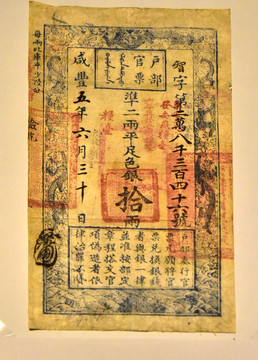 智字第二萬八千三百四十六號
戶部
官票
準二兩平足色銀拾兩
咸豐五年六月三十日
每兩比庫平少陸分
戶部奏行官
票凡願將官
票兌換銀錢
者與銀一律
並准按部定
章程搭交官
項偽造者依
律治罪不貸